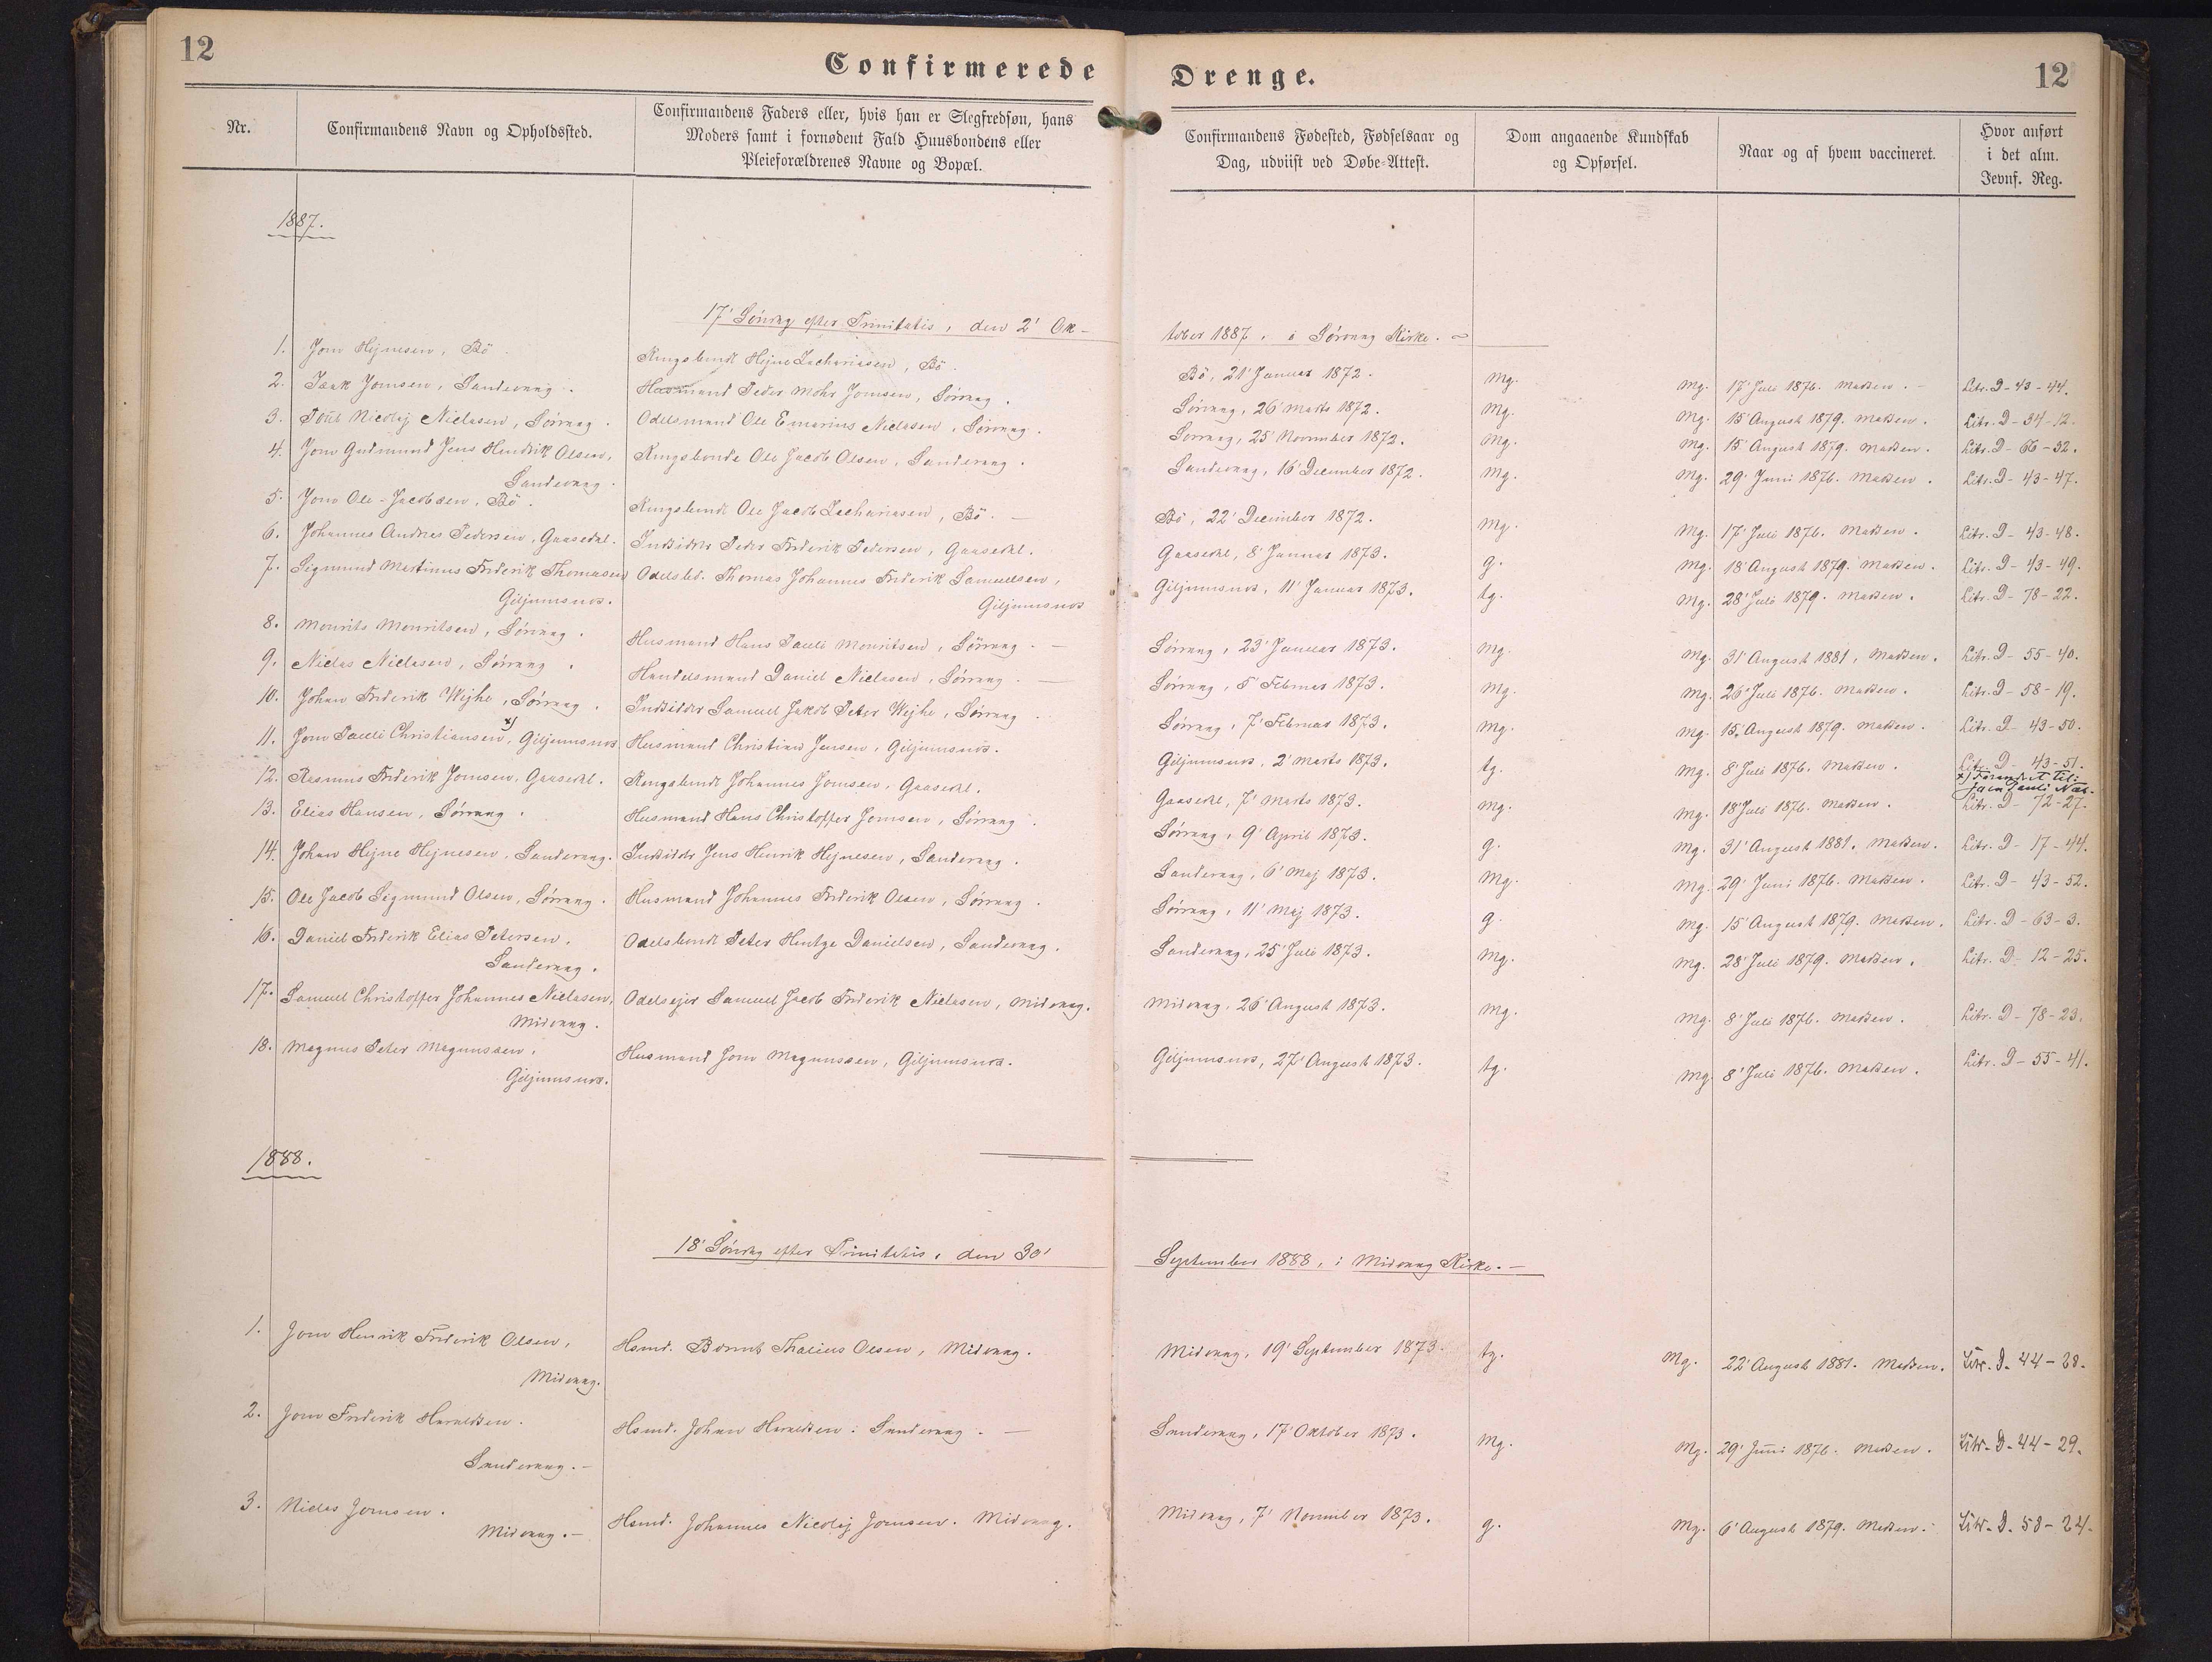 12
Confirmerede
Drenge.
12
Nr.
Confirmandens Navn og Opholdssted.
Confirmandens Faders eller, hvis han er Slegfredsøn, hans
Moders samt i fornødent Fald Huusbondens eller
Pleieforældrenes Navne og Bopæl.
Confirmandens Fødested, Fødselsaar og
Dag, udviist ved Døbe-Attest.
Dom angaaende Kundskab
og Opførsel.
Naar og af hvem vaccineret.
Hvor anført
i det alm.
Jevnf. Reg.
1887.
17' Söndag efter Trinitatis, den 2' Ok-
tober 1887, i Sörvaag Kirke.
1. Joen Hejnesen, Bö. Kongsbonde Hejne Zachariasen, Bö. Bö, 21' Januar 1872. mg. mg. 17' Juli 1876. Madsen. Litr. D-43-44.
2. Isak Joensen, Sandevaag. Husmand Peder Mohr Joensen, Sörvaag. Sörvaag, 26' Marts 1872. mg. mg. 15' August 1879. Madsen. Litr. D-34-12.
3. Poul Nicolaj Niclasen, Sörvaag. Odelsmand Ole Emarius Niclasen, Sörvaag. Sörvaag, 25' November 1872. mg. mg. 15' August 1879. Madsen. Litr. D-66-32.
4. Joen Gudmund Jens Hendrik Olsen, Kongsbonde Ole Jacob Olsen, Sandevaag. Sandevaag, 16' December 1872. mg. mg. 29' Juni 1876. Madsen. Litr. D-43-47.
Sandevaag.
5. Joen Ole-Jacobsen, Bö. Kongsbonde Ole Jacob Zachariasen, Bö. Bö, 22' December 1872. mg. mg. 17' Juli 1876. Madsen. Litr. D-43-48.
6. Johannes Andreas Pedersen, Gaasedal. Indsidder Peder Frederik Pedersen, Gaasedal. Gaasedal, 8' Januar 1873. g. mg. 18' August 1879. Madsen. Litr. D-43-49.
7. Sigmund Martinus Frederik Thomasen Odelsbd. Thomas Johannes Frederik Samuelsen, Giljumsnæs, 11' Januar 1873. tg. mg. 28' Juli 1879. Madsen. Litr. D-78-22.
Giljumsnæs. Giljumsnæs
8. Mourits Mouritsen, Sörvaag. Husmand Hans Pauli Mouritsen, Sörvaag. Sörvaag, 23' Januar 1873. mg. mg. 31' August 1881, Madsen. Litr. D-55-40.
9. Niclas Niclasen, Sörvaag. Handelsmand Daniel Niclasen, Sörvaag. Sörvaag, 5' Februar 1873. mg. mg. 26' Juli 1876. Madsen. Litr. D-58-19.
10. Johan Frederik Wejhe, Sörvaag. Indsidder Samuel Jakob Peter Wejhe, Sörvaag. Sörvaag, 7' Februar 1873. mg. mg. 15' August 1879. Madsen. Litr. D-43-50.
11. Joen Pauli Christiansen x), Giljumsnæs. Husmand Christian Jensen, Giljumsnæs. Giljumsnæs, 2' Marts 1873. tg. mg. 8' Juli 1876. Madsen. Litr. D-43-51.
x) Forandret til:
Joen Pauli Næs.
12. Rasmus Frederik Joensen, Gaasedal. Kongsbonde Johannes Joensen, Gaasedal. Gaasedal, 7' Marts 1873. mg. mg. 18' Juli 1876. Madsen. Litr. D-72-27.
13. Elias Hansen, Sörvaag. Husmand Hans Christoffer Joensen, Sörvaag. Sörvaag, 9' April 1873. g. mg. 31' August 1881. Madsen. Litr. D-17-44.
14. Johan Hejne Hejnesen, Sandevaag. Indsidder Jens Henrik Hejnesen, Sandevaag. Sandevaag, 6' Maj 1873. mg. mg. 29' Juni 1876. Madsen. Litr. D-43-52.
15. Ole Jacob Sigmund Olsen, Sörvaag. Husmand Johannes Frederik Olsen, Sörvaag. Sörvaag, 11' Maj 1873. g. mg. 15' August 1879. Madsen. Litr. D-63-3.
16. Daniel Frederik Elias Petersen, Odelsbonde Peter Hentze Danielsen, Sandevaag. Sandevaag, 25' Juli 1873. mg. mg. 28' Juli 1879. Madsen. Litr. D-12-25.
Sandevaag.
17. Samuel Christoffer Johannes Niclasen, Odelsejer Samuel Jacob Frederik Niclasen, Midvaag. Midvaag, 26' August 1873. mg. mg. 8' Juli 1876. Madsen. Litr. D-78-23.
Midvaag.
18. Magnus Peter Magnussen, Husmand Joen Magnussen, Giljumsnæs. Giljumsnæs, 27' August 1873. tg. mg. 8' Juli 1876. Madsen. Litr. D-55-41.
Giljumsnæs.
1888.
18' Söndag efter Trinitatis, den 30'
September 1888, i Midvaag Kirke.-
1. Joen Henrik Frederik Olsen, Hsmd. Berent Thalius Olsen, Midvaag. Midvaag, 19' September 1873 tg. mg. 22' August 1881. Madsen. Litr. D. 44-28.
Midvaag.
2. Joen Frederik Haraldsen. Hsmd. Johan Haraldsen: Sandevaag.- Sandevaag, 17' Oktober 1873. mg. mg. 29' Juni 1876. Madsen. Litr. D. 44-29.
Sandevaag.-
3. Niclas Joensen. Hsmd. Johannes Nicolaj Joensen. Midvaag. Midvaag, 7' November 1873. g. mg. 6' August 1879. Madsen. Litr. D. 58-24.
Midvaag.-